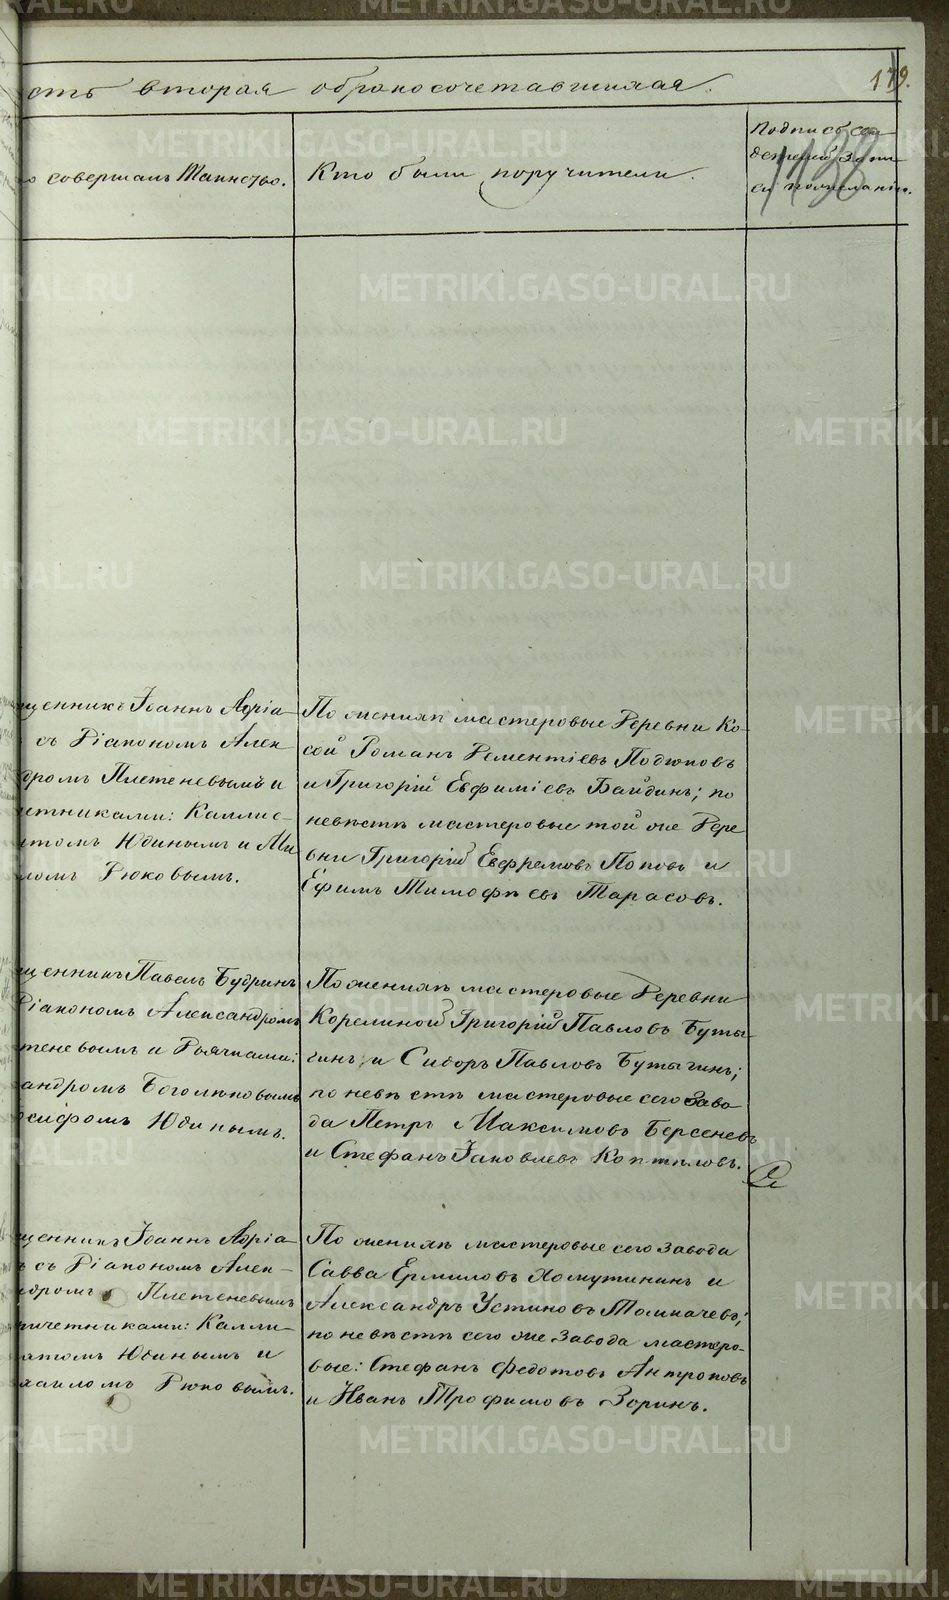 сть вторая обракосочетавшихся.
179.
о совершалъ Таинство.
Кто были поручители.
Подпись сви
детелей запи
си по желанію.
1138
щенникъ Іоаннъ Адріа
съ Діакономъ Алек
дромъ Плетеневымъ и
итниками: Каллис-
томъ Юдинымъ и Ми
ломъ Рюковымъ.
По женихѣ мастеровые Деревни Ко-
сой Романъ Дементіевъ Подюковъ
и Григорій Евфиміевъ Байдинъ; по
невѣстѣ мастеровые той же Дере
вни Григорій Евфремовъ Поповъ и
Ефимъ Тимофѣевъ Тарасовъ.
щенникъ Павелъ Будринъ
Діакономъ Александромъ
теневымъ и Дьячками:
андромъ Боголюбовымъ
сифомъ Юдинымъ.
По женихѣ мастеровые Деревни
Корелиной Григорій Павловъ Буты-
гинъ и Сидоръ Павловъ Бутыгинъ;
по невѣстѣ мастеровые сего Заво
да Петръ Максимовъ Берсеневъ
и Стефанъ Іаковлевъ Коптяловъ.
щенникъ Іоаннъ Адріа-
ъ съ Діакономъ Алек-
дромъ Плетеневымъ
ичетниками: Калли-
атомъ Юдинымъ и
хаиломъ Рюковымъ.
По женихѣ мастеровые сего завода
Савва Ермиловъ Хомутининъ и
Александръ Устиновъ Толмачевъ;
по невѣстѣ сего же Завода мастеро-
вые: Стефанъ Федотовъ Антроповъ
и Иванъ Трофимовъ Зоринъ.